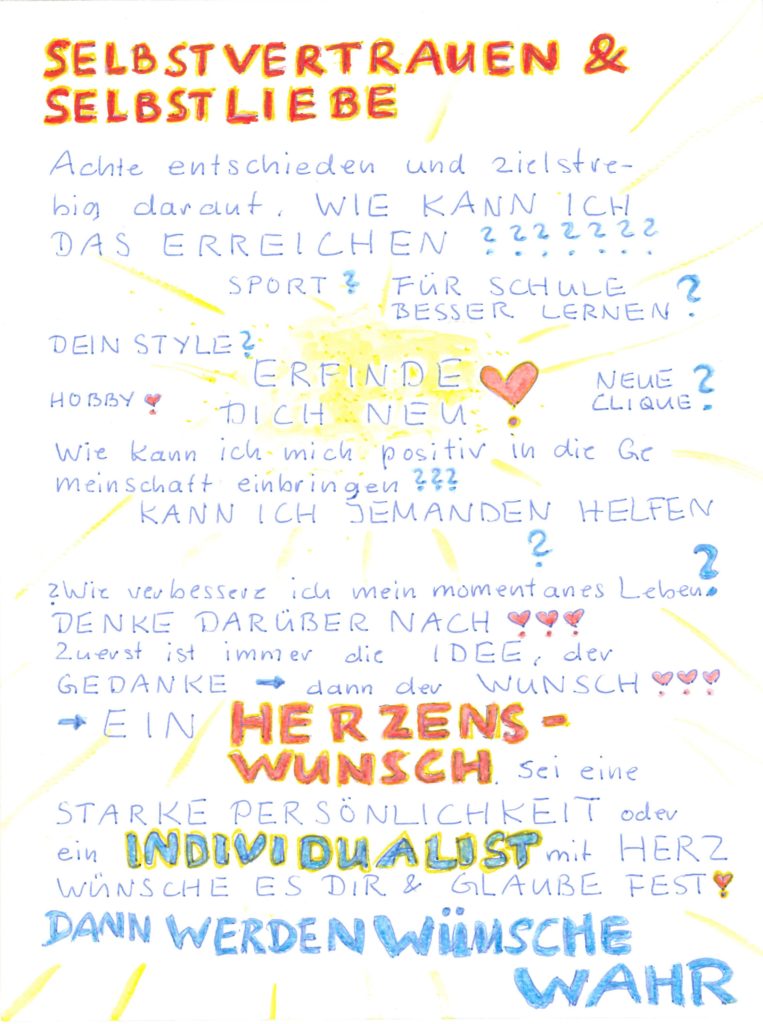 SELBSTVERTRAUEN &
SELBSTLIEBE
Achte entschieden und zielstre-
big darauf, WIE KANN ICH
DAS ERREICHEN ???????
SPORT? FÜR SCHULE
BESSER LERNEN?
DEIN STYLE?
ERFINDE
DICH NEU!
HOBBY!
NEUE
CLIQUE?
Wie kann ich mich positiv in die Ge
meinschaft einbringen ???
KANN ICH JEMANDEN HELFEN
?
?Wie verbessere ich mein momentanes Leben?
DENKE DARÜBER NACH !!!
Zuerst ist immer die IDEE, der
GEDANKE → dann der WUNSCH !!!
→ EIN HERZENS-
WUNSCH. Sei eine
STARKE PERSÖNLICHKEIT oder
ein INDIVIDUALIST mit HERZ
WÜNSCHE ES DIR & GLAUBE FEST!
DANN WERDEN WÜNSCHE
WAHR